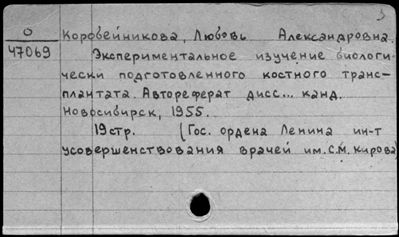 О
47069
Коробейникова, Любовь Александровна.
Экспериментальное изучение биологи-
чески подготовленного костного транс-
плантата. Автореферат дисс... канд.
Новосибирск, 1955.
19 стр. (Гос. ордена Ленина ин-т
усовершенствования врачей им. С.М. Кирова)